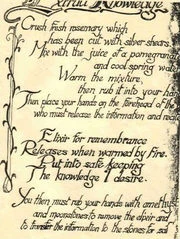 Knowledge
Crush fresh rosemary which
has been cut with silver shears.
Mix with the juice of a pomegrana
and cool spring wa
Warm the mixture,
then rub it into your ha
Then place your hands on the forehead of the
who must release the information and reci
Elixir for remembrance
Releases when warmed by fire.
Put into safe keeping
The knowledge I desire.
You then must rub your hands with
and moonstones to remove the elixir and
to transfer the information to the stones for saf